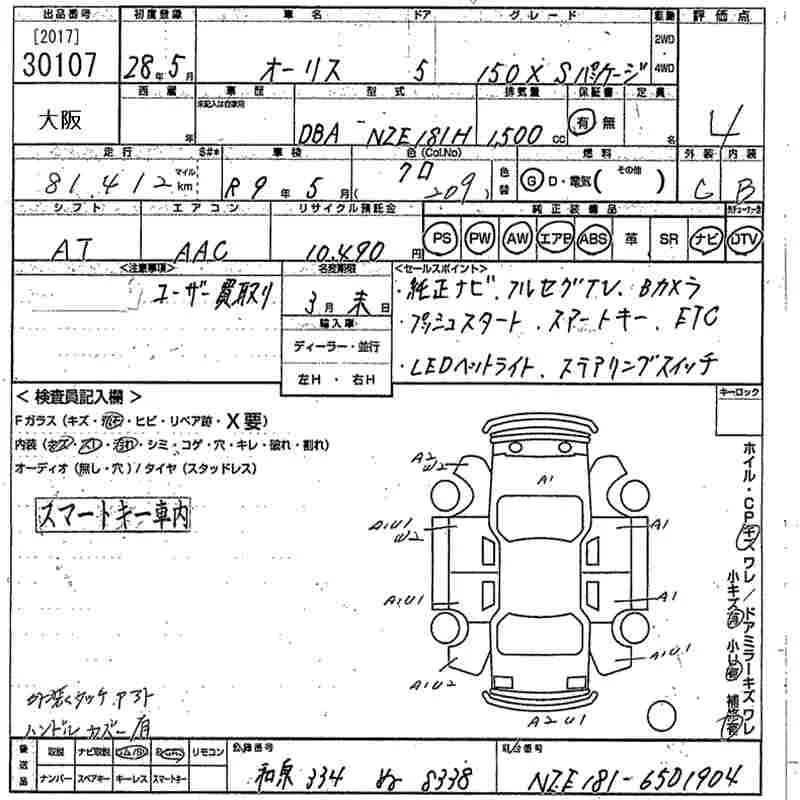 出品番号 初度登録 車名 ドア グレード 駆動 評価点
[2017] 30107 28年5月 オーリス 5 150X Sパッケージ 2WD・4WD 4
大阪
西暦 年 車歴 未記入は自家用 型式 排気量 保証書 定員
DBA NZE181H 1,500cc 有 無 名
走行 S#* 車検 色(Col.No) 色替 燃料 外装 内装
81,412 マイル km R9年5月 クロ (209) G D・電気( その他 ) C B
シフト エアコン リサイクル預託金 純正装備品
AT AAC 10,490円 PS PW AW エアB ABS 革 SR ナビ DTV
<注意事項> 名変期限 <セールスポイント>
ユーザー買取り
3月末日
輸入車
ディーラー・並行
左H・右H
・純正ナビ、フルセグTV、Bカメラ
・プッシュスタート、スマートキー、ETC
・LEDヘッドライト、ステアリングスイッチ
<検査員記入欄> キーロック
Fガラス(キズ・飛石・ヒビ・リペア跡・X要)
内装(キズ・スレ・汚れ・シミ・コゲ・穴・キレ・破れ・割れ)
オーディオ(無し・穴)/タイヤ(スタッドレス)
スマートキー車内
A2
W2
A1
A1U1
W2
A1
A1U1
A1
A1U2
A1U1
A2U1
ホイル・CP キズ ワレ/ドアミラーキズ ワレ
小キズ有 小U有 補修有
ハンドルカバー有
後送品 取説 ナビ取説 リモコン 登録番号 車台番号
ナンバー スペアキー キーレス スマートキー 和泉 334 ぬ 8338 NZE181-6501904